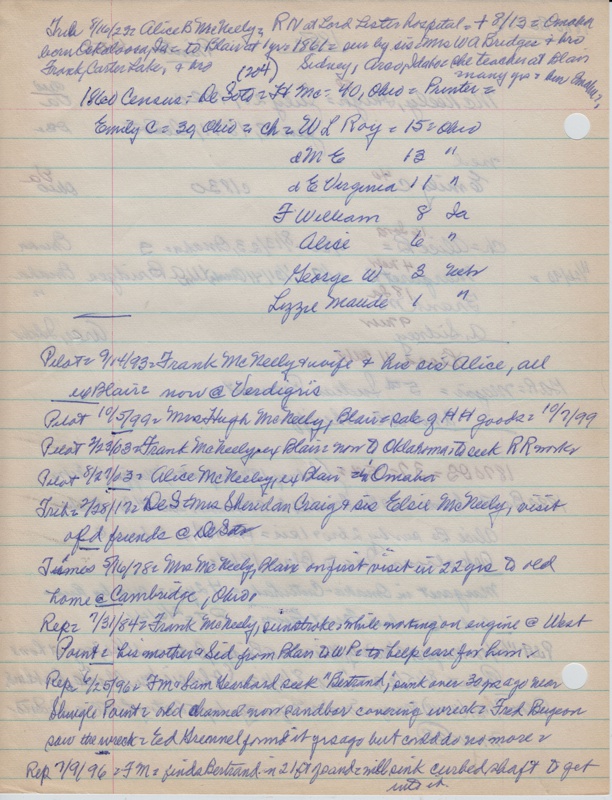 Trib 8/16/23 = Alice B McNeely = RN at Lord Lister hospital = + 8/13 = Omaha
born Oskaloosa, Ia = to Blair at 1 yr = 1861 = sur by sis = Mrs WA Bridges & bro
Frank, Carter Lake, & bro Sidney, Arco, Idaho = she teacher at Blair
(204) many yrs =
1860 Census; DeSoto = H Mc = 40, Ohio = Printer =
Emily C = 39, Ohio = ch = W L Roy = 15 = Ohio
d M E 13 "
d E Virginia 11 "
F William 8 Ia
Alice 6 "
George W 3 Nebr
Lizzie Maude 1 "
Pilot = 9/14/93 = Frank McNeely & wife & his sis Alice, all
ex Blair = now @ Verdigris
Pilot 10/5/99 = Mrs Hugh McNeely, Blair = sale of HH goods = 10/7/99
Pilot 2/23/03 = Frank McNeely = ex Blair = now to Oklahoma to seek RR work =
Pilot 8/27/03 = Alice McNeeley, ex Blair = Omaha
Trib = 2/28/17 = DeS = Mrs Sheridan Craig & sis Elsie McNeely, visit
old friends @ DeSoto
Times 5/16/78 = Mrs McNeely, Blair on first visit in 22 yrs to old
home @ Cambridge, Ohio
Rep = 7/31/84 = Frank McNeely, sunstroke = while working on engine @ West
Point = his mother & Sid from Blair to WPt to help care for him =
Rep = 6/25/96 = F M & Sam seek "Bertrand," sunk over 30 yrs ago near
Shingle Point = old channel now sandbar covering wreck = Fred
saw the wreck = Ed found it yrs ago but could do no more =
Rep 7/9/96 = F M = finds Bertrand in 21 ft sand = will sink curbed shaft to get
into it